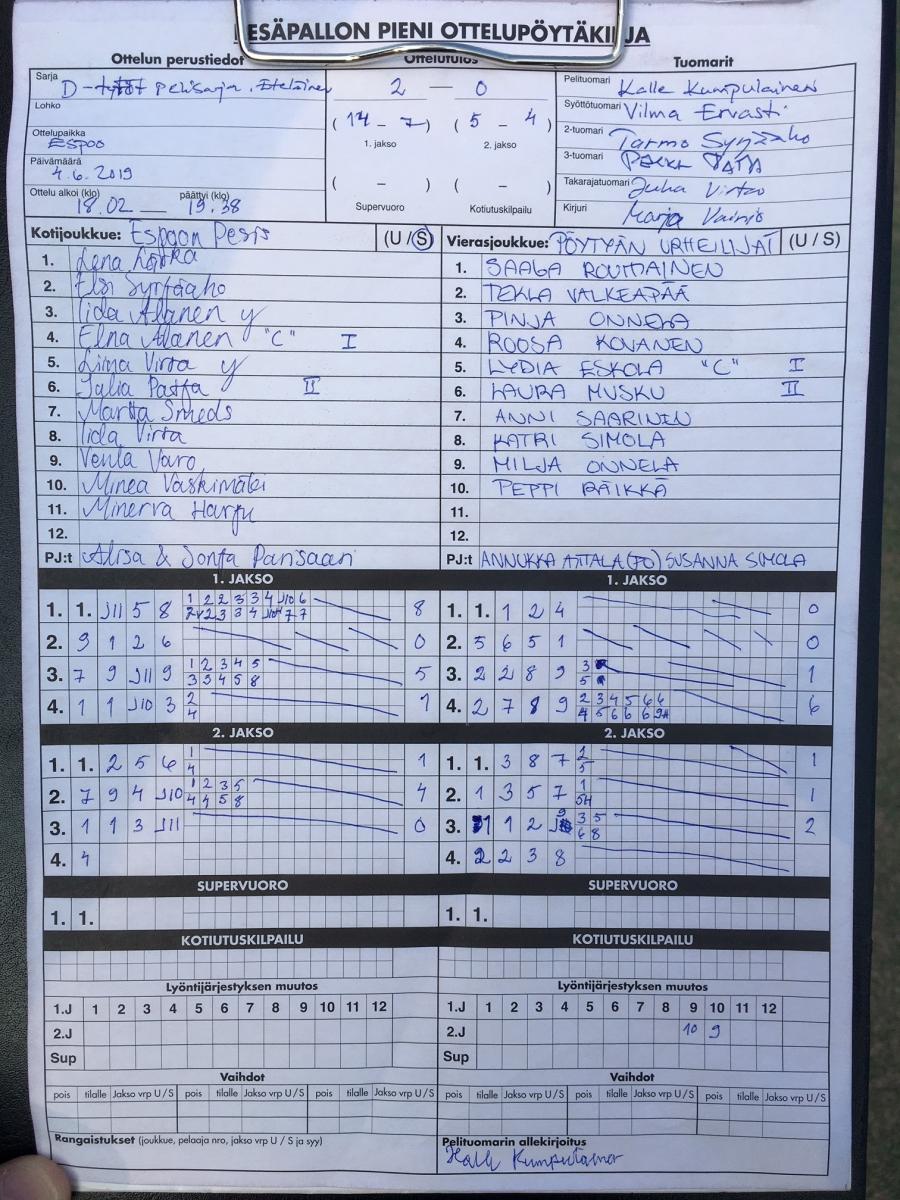 PESÄPALLON PIENI OTTELUPÖYTÄKIRJA
Ottelun perustiedot
Ottelutulos
Tuomarit
Sarja D-tytöt Pelisarja, Eteläinen
Lohko
Ottelupaikka Espoo
Päivämäärä 4.6.2019
Ottelu alkoi (klo) päättyi (klo)
18.02 — 19.38
2 — 0
(14 - 7) (5 - 4)
1. jakso 2. jakso
( - ) ( - )
Supervuoro Kotiutuskilpailu
Pelituomari Kalle Kumpulainen
Syöttötuomari Vilma Ervasti
2-tuomari Tarmo
3-tuomari
Takarajatuomari Juha Virta
Kirjuri Marja Vainio
Kotijoukkue: Espoon Pesis (U / S)
1. Lena
2. Elsi
3. Iida Alanen y
4. Elna Alanen "C" I
5. Liina Virta y
6. Julia II
7. Martta Smeds
8. Iida Virta
9. Venla Varo
10. Minea Vaskimäki
11. Minerva Harju
12.
PJ:t Alisa & Jonja
Vierasjoukkue: PÖYTYÄN URHEILIJAT (U / S)
1. SAAGA ROUHIAINEN
2. TEKLA VALKEAPÄÄ
3. PINJA ONNELA
4. ROOSA KOVANEN
5. LYDIA ESKOLA "C" I
6. LAURA MUSKU II
7. ANNI SAARINEN
8. KATRI SIMOLA
9. MILJA ONNELA
10. PEPPI RÄIKKÄ
11.
12.
PJ:t ANNUKKA ATTALA (PJ) SUSANNA SIMOLA
1. JAKSO
1. 1. J11 5 8 1 2 2 3 3 4 J10 6 8
2 3 3 4 7 7
2. 9 1 2 6 0
3. 7 9 J11 9 1 2 3 4 5 5
3 3 4 5 8
4. 1 1 J10 3 2 1
4
2. JAKSO
1. 1. 2 5 6 1 1
4
2. 7 9 4 J10 1 2 3 5 4
4 4 5 8
3. 1 1 3 J11 0
4. 4
SUPERVUORO
1. 1.
KOTIUTUSKILPAILU
Lyöntijärjestyksen muutos
1.J 1 2 3 4 5 6 7 8 9 10 11 12
2.J
Sup
Vaihdot
pois tilalle Jakso vrp U/S pois tilalle Jakso vrp U/S pois tilalle Jakso vrp U/S
Rangaistukset (joukkue, pelaaja nro, jakso vrp U / S ja syy)
1. JAKSO
1. 1. 1 2 4 0
2. 5 6 5 1 0
3. 2 2 8 9 3 1
5
4. 2 7 8 9 2 3 4 5 6 6 6
4 5 6 6 6
2. JAKSO
1. 1. 3 8 7 2 1
5
2. 1 3 5 7 1 1
3. 1 1 2 9 3 5 2
6 8
4. 2 2 3 8
SUPERVUORO
1. 1.
KOTIUTUSKILPAILU
Lyöntijärjestyksen muutos
1.J 1 2 3 4 5 6 7 8 9 10 11 12
2.J 10 9
Sup
Vaihdot
pois tilalle Jakso vrp U/S pois tilalle Jakso vrp U/S pois tilalle Jakso vrp U/S
Pelituomarin allekirjoitus
Kalle Kumpulainen